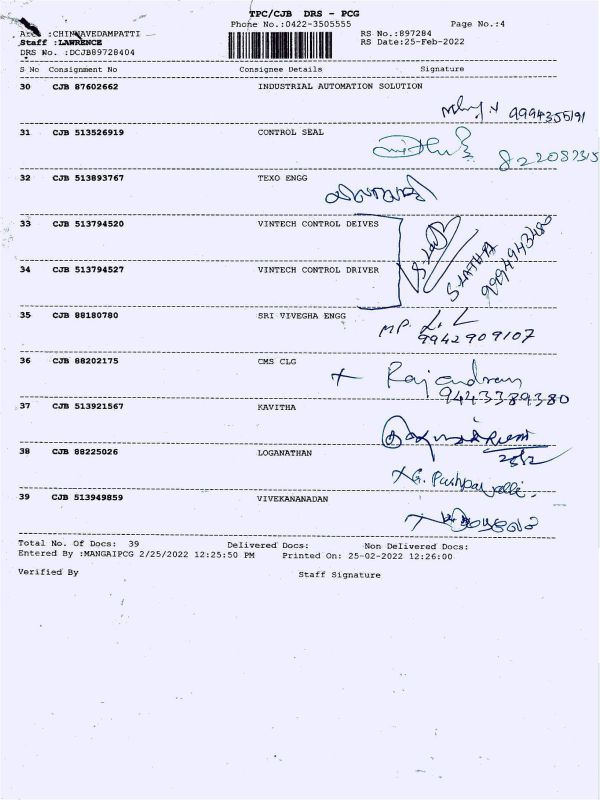 TPC/CJB DRS - PCG
Phone No.:0422-3505555 Page No.:4
Area :CHINNAVEDAMPATTI RS No.:897284
Staff :LAWRENCE RS Date:25-Feb-2022
DRS No. :DCJB89728404
S No Consignment No Consignee Details Signature
30 CJB 87602662 INDUSTRIAL AUTOMATION SOLUTION
9994355191
31 CJB 513526919 CONTROL SEAL
32 CJB 513893767 TEXO ENGG
33 CJB 513794520 VINTECH CONTROL DEIVES
34 CJB 513794527 VINTECH CONTROL DRIVER
S. LATHA
35 CJB 88180780 SRI VIVEGHA ENGG
MP.
9942909107
36 CJB 88202175 CMS CLG
Rajendran
9443389380
37 CJB 513921567 KAVITHA
38 CJB 88225026 LOGANATHAN
G. Pushpavalli.
39 CJB 513949859 VIVEKANANADAN
Total No. Of Docs: 39 Delivered Docs: Non Delivered Docs:
Entered By :MANGAIPCG 2/25/2022 12:25:50 PM Printed On: 25-02-2022 12:26:00
Verified By Staff Signature